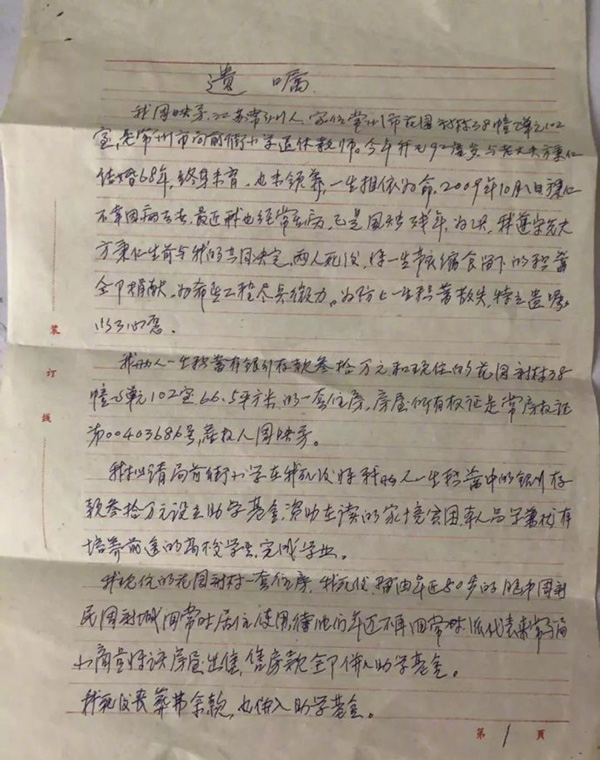 遗嘱
我周映芬,江苏常州人,家住常州市花园新村38幢乙单元102
室,是常州市局前街小学退休教师。今年我已92虚岁,与老丈夫方秉仁
结婚68年,终身未育,也未领养,一生相依为命,2009年10月八日秉仁
不幸因病去世,最近我也经常生病,已是风烛残年,为此,我遵守先夫
方秉仁生前与我的共同决定,两人死后,将一生节衣缩食留下的积蓄
全部捐献,为希望工程尽点微力。为防止一生积蓄散失,特立遗嘱,
以了心愿。
我两人一生积蓄有银行存款叁拾万元和现住的花园新村38
幢乙单元102室66.5平方米的一套住房,房屋所有权证是常房权证
第00403686号,产权人周映芬。
我拟请局前街小学在我死后将我两人一生积蓄中的银行存
款叁拾万元设立助学基金,资助在读的家境贫困、人品学兼优有
培养前途的高校学生,完成学业。
我现住的花园新村一套住房,我死后,留由年近80岁的
民周新城回常时居住使用,待他们年迈不再回常时,
小商量将该房屋出售,售房款全部併入助学基金。
我死后丧葬费余款,也併入助学基金。
装
订
线
第 1 頁